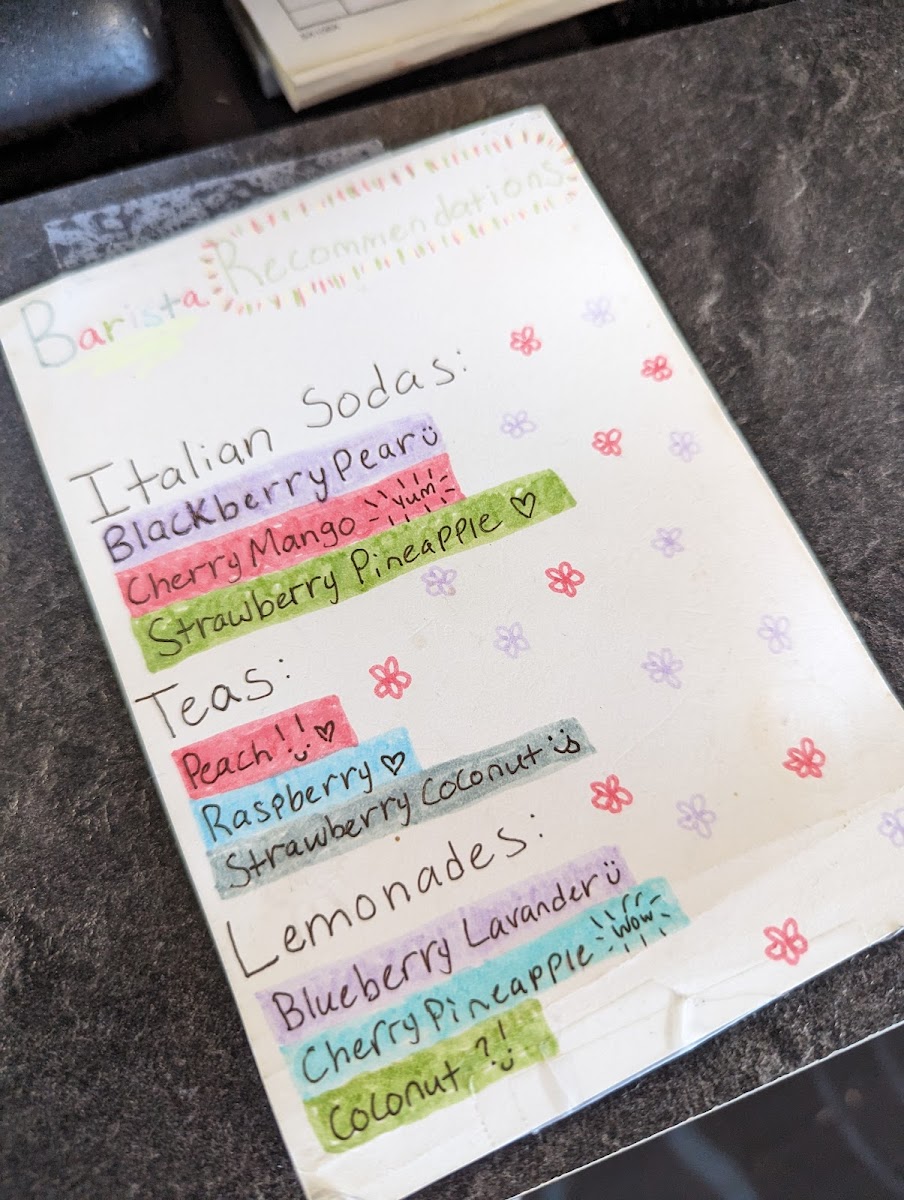 Barista Recommendations
Italian Sodas:
Blackberry Pear
Cherry Mango Yum
Strawberry Pineapple
Teas:
Peach!!
Raspberry
Strawberry Coconut
Lemonades:
Blueberry Lavander
Cherry Pineapple Wow
Coconut?!